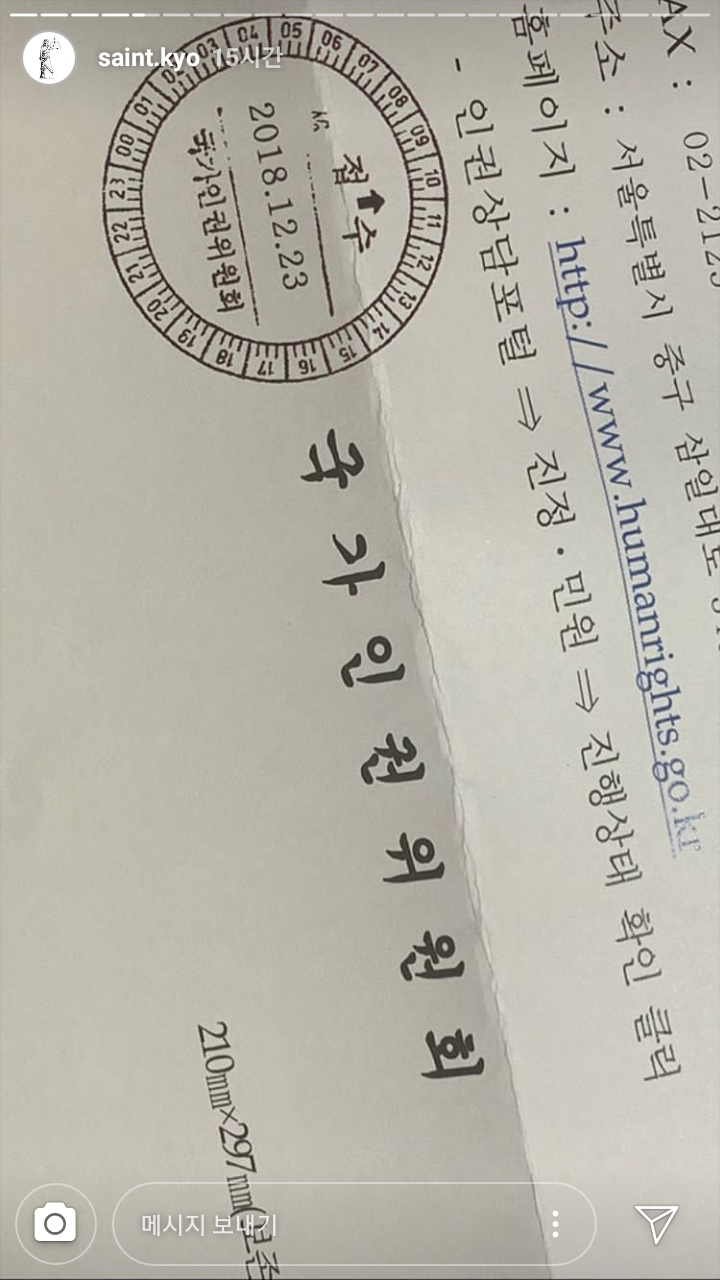 saint.kyo 15시간
AX : 02-2125
주소 : 서울특별시 중구 삼일대로
홈페이지 : http://www.humanrights.go.kr
- 인권상담포털 ⇒ 진정·민원 ⇒ 진행상태 확인 클릭
접수
2018.12.23
국가인권위원회
00 01 02 03 04 05 06 07 08 09 10 11 12 13 14 15 16 17 18 19 20 21 22 23
국가인권위원회
210㎜×297㎜(보존
메시지 보내기